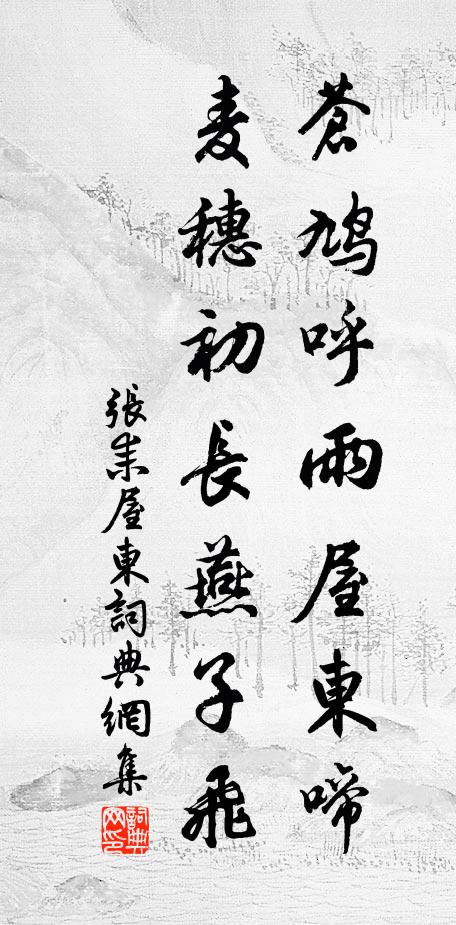 蒼鳩呼雨屋東啼
麦穗初長燕子飛
張耒屋東詞典網集
詞典
网印